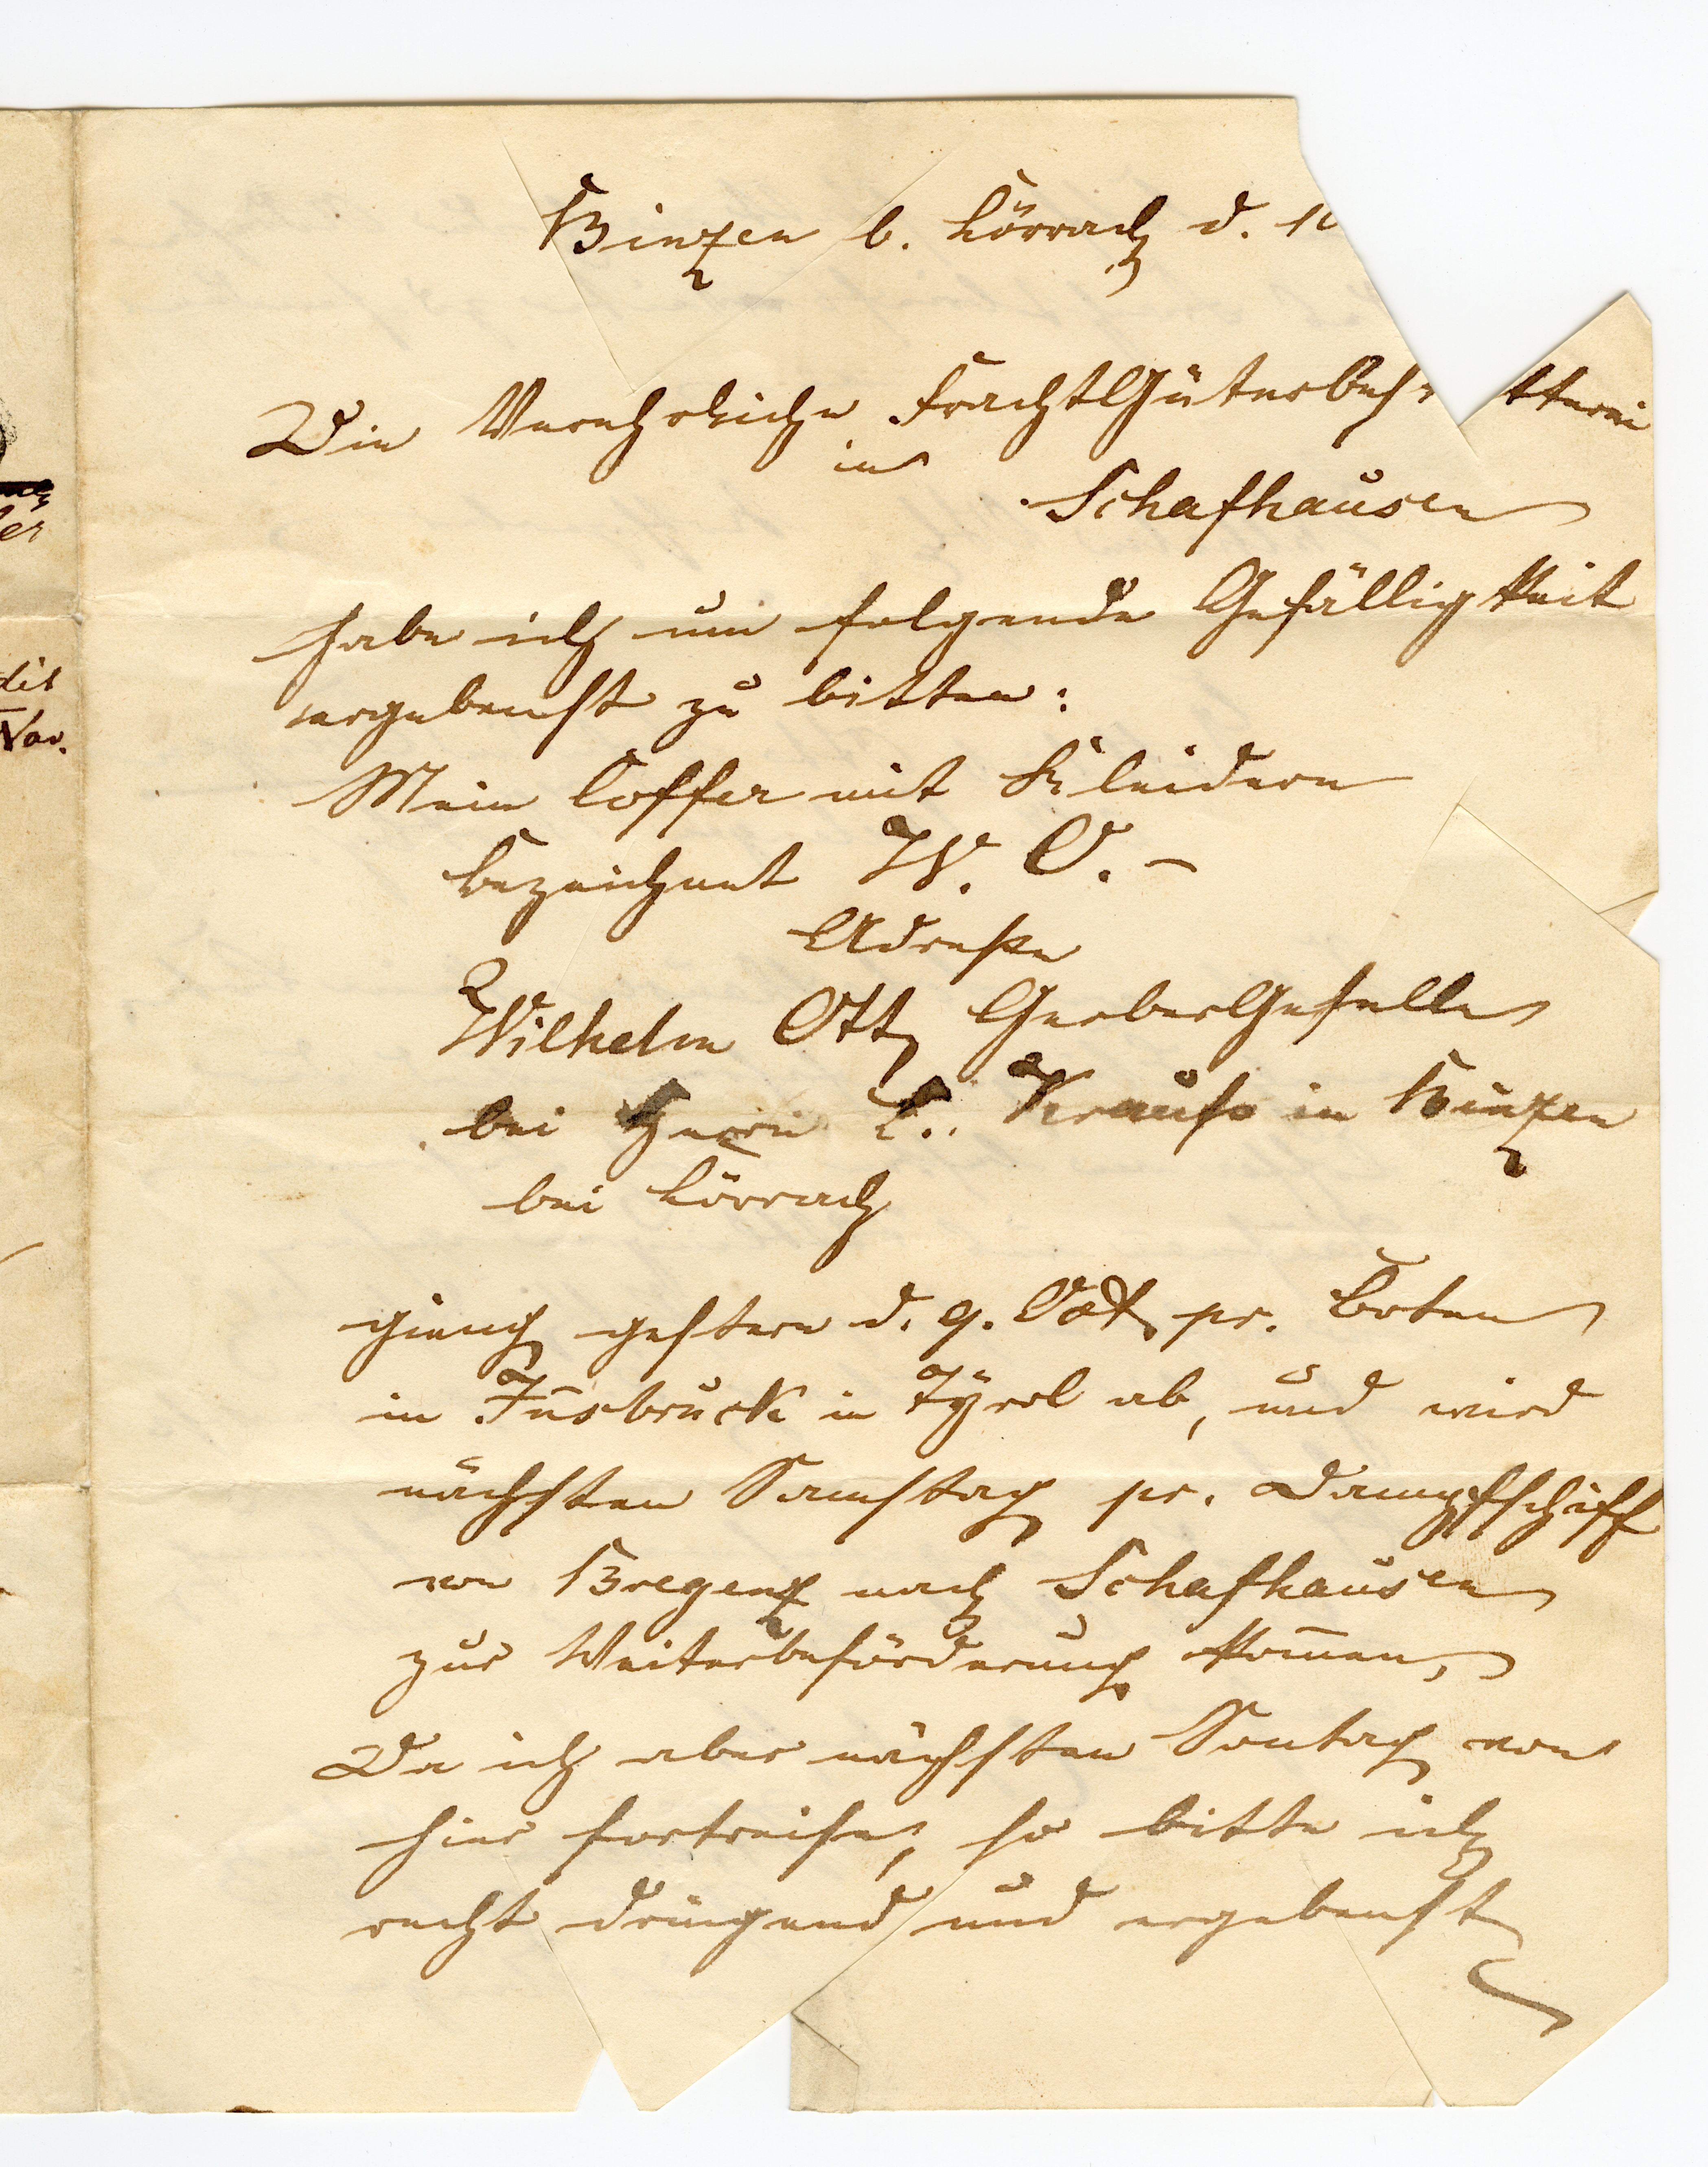 Binzen b. Lörrach d. 10
Die Verehrliche FrachtGüterbest tterei
in
Schafhausen
habe ich um folgende Gefälligkeit
ergebenst zu bitten:
Mein Coffer mit Kleidern
bezeichnet W. O. –
Adresse
Wilhelm Ott, GerberGeselle
bei Herrn Krauss in Binzen
bei Lörrach
gieng gestern d. 9. Oct. pr. Boten
in Insbruck in Tÿrol ab, und wird
nächsten Samstag pr. Dampfschiff
von Bregenz nach Schafhausen
zur Weiterbeförderung kom̄en,
Da ich aber nächsten Sontag von
hier fortreise, so bitte ich
recht dringend und ergebenst